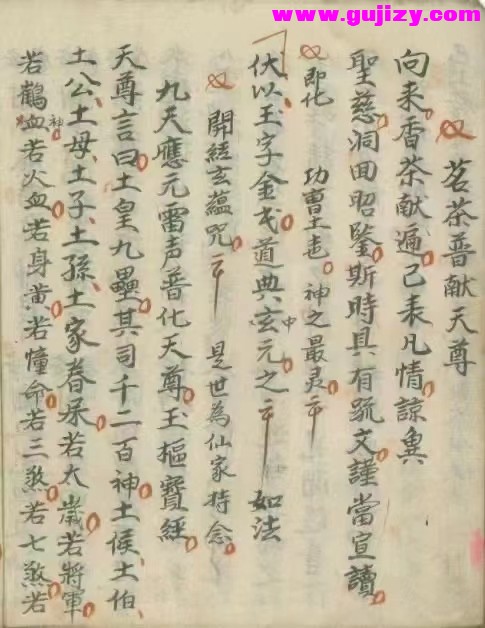 www.gujizy.com
茗茶普献天尊
向来香茶献遍已表凡情諒奥
聖慈洞回昭鑒斯時具有疏文謹當宣讀
即化 功曹土地神之最灵
伏以玉字金文道典玄中元之 如法
開經玄蘊咒 是世為仙家持念
九天應元雷声普化天尊玉樞寶經
天尊言曰土皇九壘其司千二百神土侯土伯
土公土母土子土孫土家眷承若太歲若將軍
若鶴神血若火血若身黄若憧命若三煞若七煞若